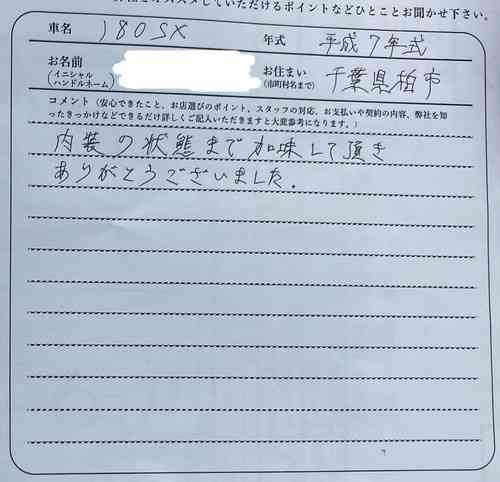 オススメしていただけるポイントなどひとことお聞かせ下さい。
車名 180SX 年式 平成7年式
お名前 お住まい 千葉県柏市
(イニシャル (市町村名まで)
ハンドルネーム)
コメント（安心できたこと、お店選びのポイント、スタッフの対応、お支払いや契約の内容、弊社を知
ったきっかけなどできるだけ詳しくご記入いただきますと大変参考になります。）
内装の状態まで加味して頂き
ありがとうございました.